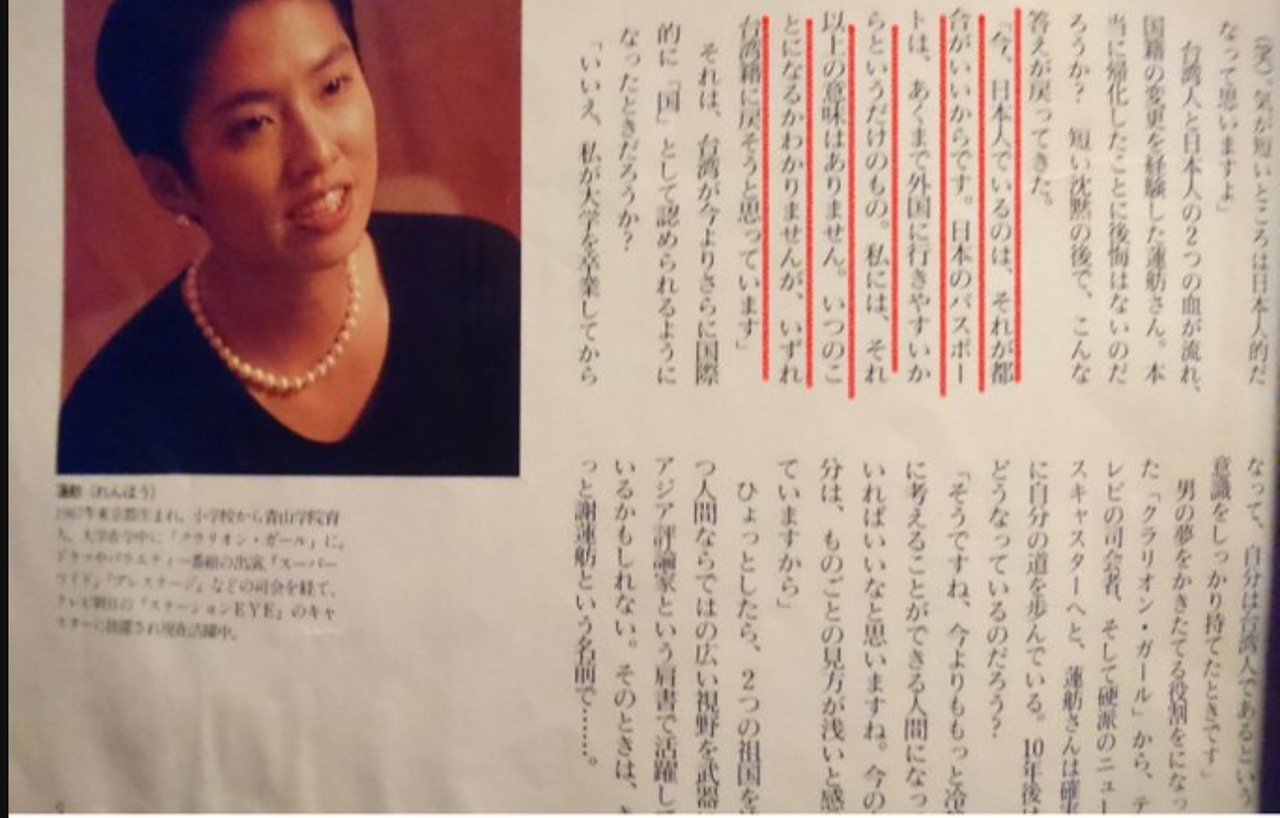 (笑)。気が短いところは日本人的だ
なって思いますよ」
台湾人と日本人の2つの血が流れ、
国籍の変更を経験した蓮舫さん。本
当に帰化したことに後悔はないのだ
ろうか? 短い沈黙の後で、こんな
答えが戻ってきた。
「今、日本人でいるのは、それが都
合がいいからです。日本のパスポー
トは、あくまで外国に行きやすいか
らというだけのもの。私には、それ
以上の意味はありません。いつのこ
とになるかわかりませんが、いずれ
台湾籍に戻そうと思っています」
それは、台湾が今よりさらに国際
的に「国」として認められるように
なったときだろうか?
「いいえ、私が大学を卒業してから
なって、自分は台湾人であるという
意識をしっかり持てたときです」
男の夢をかきたてる役割をになっ
た「クラリオン・ガール」から、テ
レビの司会者、そして硬派のニュー
スキャスターへと、蓮舫さんは確実
に自分の道を歩んでいる。10年後は
どうなっているのだろう?
「そうですね、今よりももっと冷
に考えることができる人間になっ
いればいいなと思いますね。今の
分は、ものごとの見方が浅いと感
ていますから」
ひょっとしたら、2つの祖国を
つ人間ならではの広い視野を武器
アジア評論家という肩書で活躍し
いるかもしれない。そのときは、
っと謝蓮舫という名前で……。
蓮舫(れんほう)
1967年東京都生まれ。小学校から青山学院育
ち。大学在学中に「クラリオン・ガール」に。
ドラマやバラエティー番組の出演、『スーパー
ワイド』『プレステージ』などの司会を経て、
テレビ朝日の『ステーションEYE』のキャ
スターに抜擢され現在活躍中。